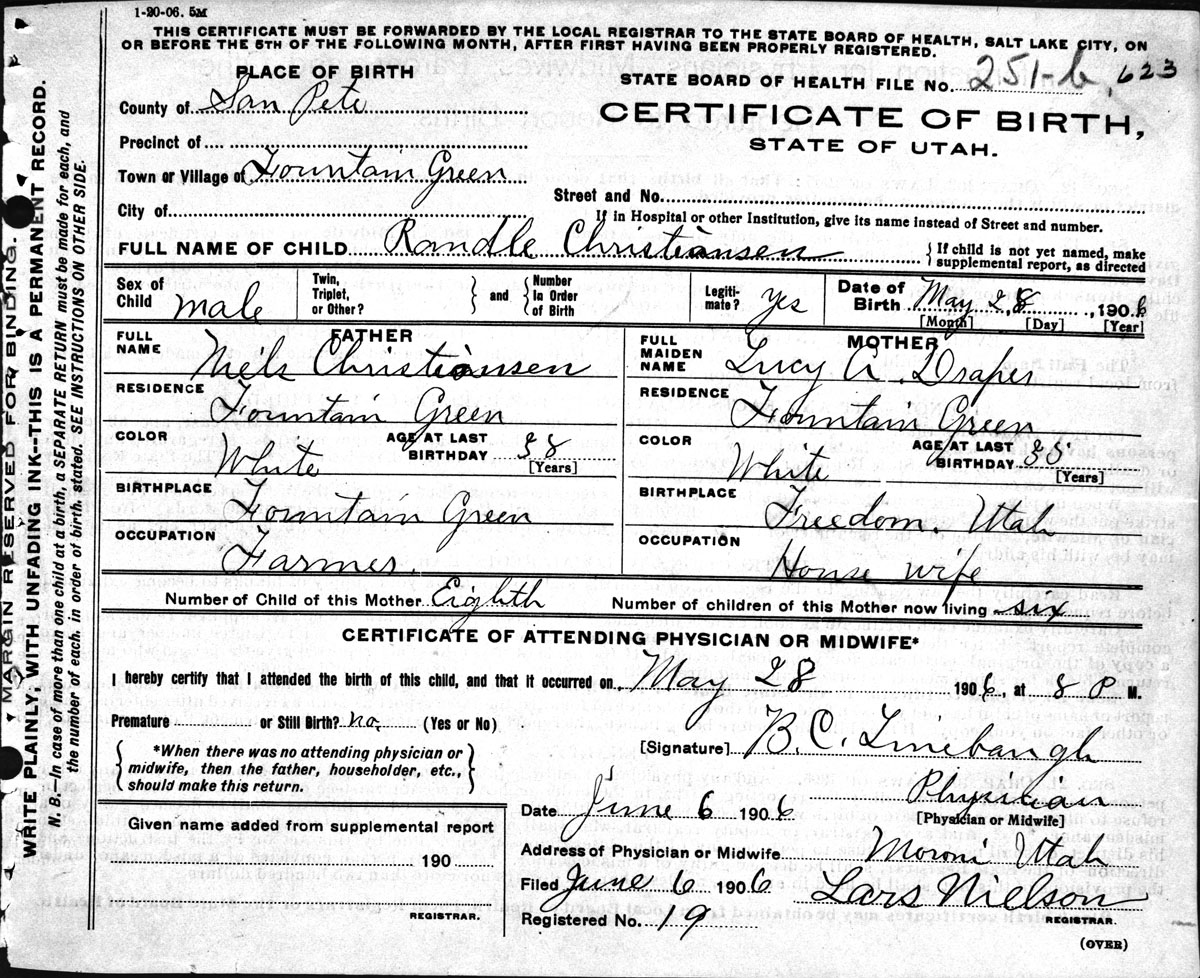 1-20-06. 5M
THIS CERTIFICATE MUST BE FORWARDED BY THE LOCAL REGISTRAR TO THE STATE BOARD OF HEALTH, SALT LAKE CITY, ON
OR BEFORE THE 5TH OF THE FOLLOWING MONTH, AFTER FIRST HAVING BEEN PROPERLY REGISTERED.
PLACE OF BIRTH
STATE BOARD OF HEALTH FILE No. 251-6, 623
County of San Pete
CERTIFICATE OF BIRTH,
STATE OF UTAH.
Precinct of
Town or Village of Fountain Green
Street and No.
City of
If in Hospital or other Institution, give its name instead of Street and number.
FULL NAME OF CHILD Randle Christiansen
{If child is not yet named, make
supplemental report, as directed
Sex of Child male
Twin, Triplet, or Other? } and { Number In Order of Birth
Legiti-mate? yes
Date of Birth May 28, 1906
[Month] [Day] [Year]
FATHER
FULL NAME Niels Christiansen
RESIDENCE Fountain Green
COLOR White AGE AT LAST BIRTHDAY 38
[Years]
BIRTHPLACE Fountain Green
OCCUPATION Farmer.
MOTHER
FULL MAIDEN NAME Lucy A. Draper
RESIDENCE Fountain Green
COLOR White AGE AT LAST BIRTHDAY
[Years]
BIRTHPLACE Freedom. Utah
OCCUPATION House wife
Number of Child of this Mother Eighth Number of children of this Mother now living six
CERTIFICATE OF ATTENDING PHYSICIAN OR MIDWIFE*
I hereby certify that I attended the birth of this child, and that it occurred on, May 28 1906, at 8 P. M.
Premature or Still Birth? no (Yes or No)
[Signature] B. C. Linebaugh
{ *When there was no attending physician or
midwife, then the father, householder, etc.,
should make this return. }
Physician
[Physician or Midwife]
Date June 6 1906
Given name added from supplemental report
190
REGISTRAR.
Address of Physician or Midwife Moroni Utah
Filed June 6 1906 Lars Nielson
REGISTRAR.
Registered No. 19
(OVER)
MARGIN RESERVED FOR BINDING.
WRITE PLAINLY, WITH UNFADING INK--THIS IS A PERMANENT RECORD.
N. B.--In case of more than one child at a birth, a SEPARATE RETURN must be made for each, and
the number of each, in order of birth, stated. SEE INSTRUCTIONS ON OTHER SIDE.